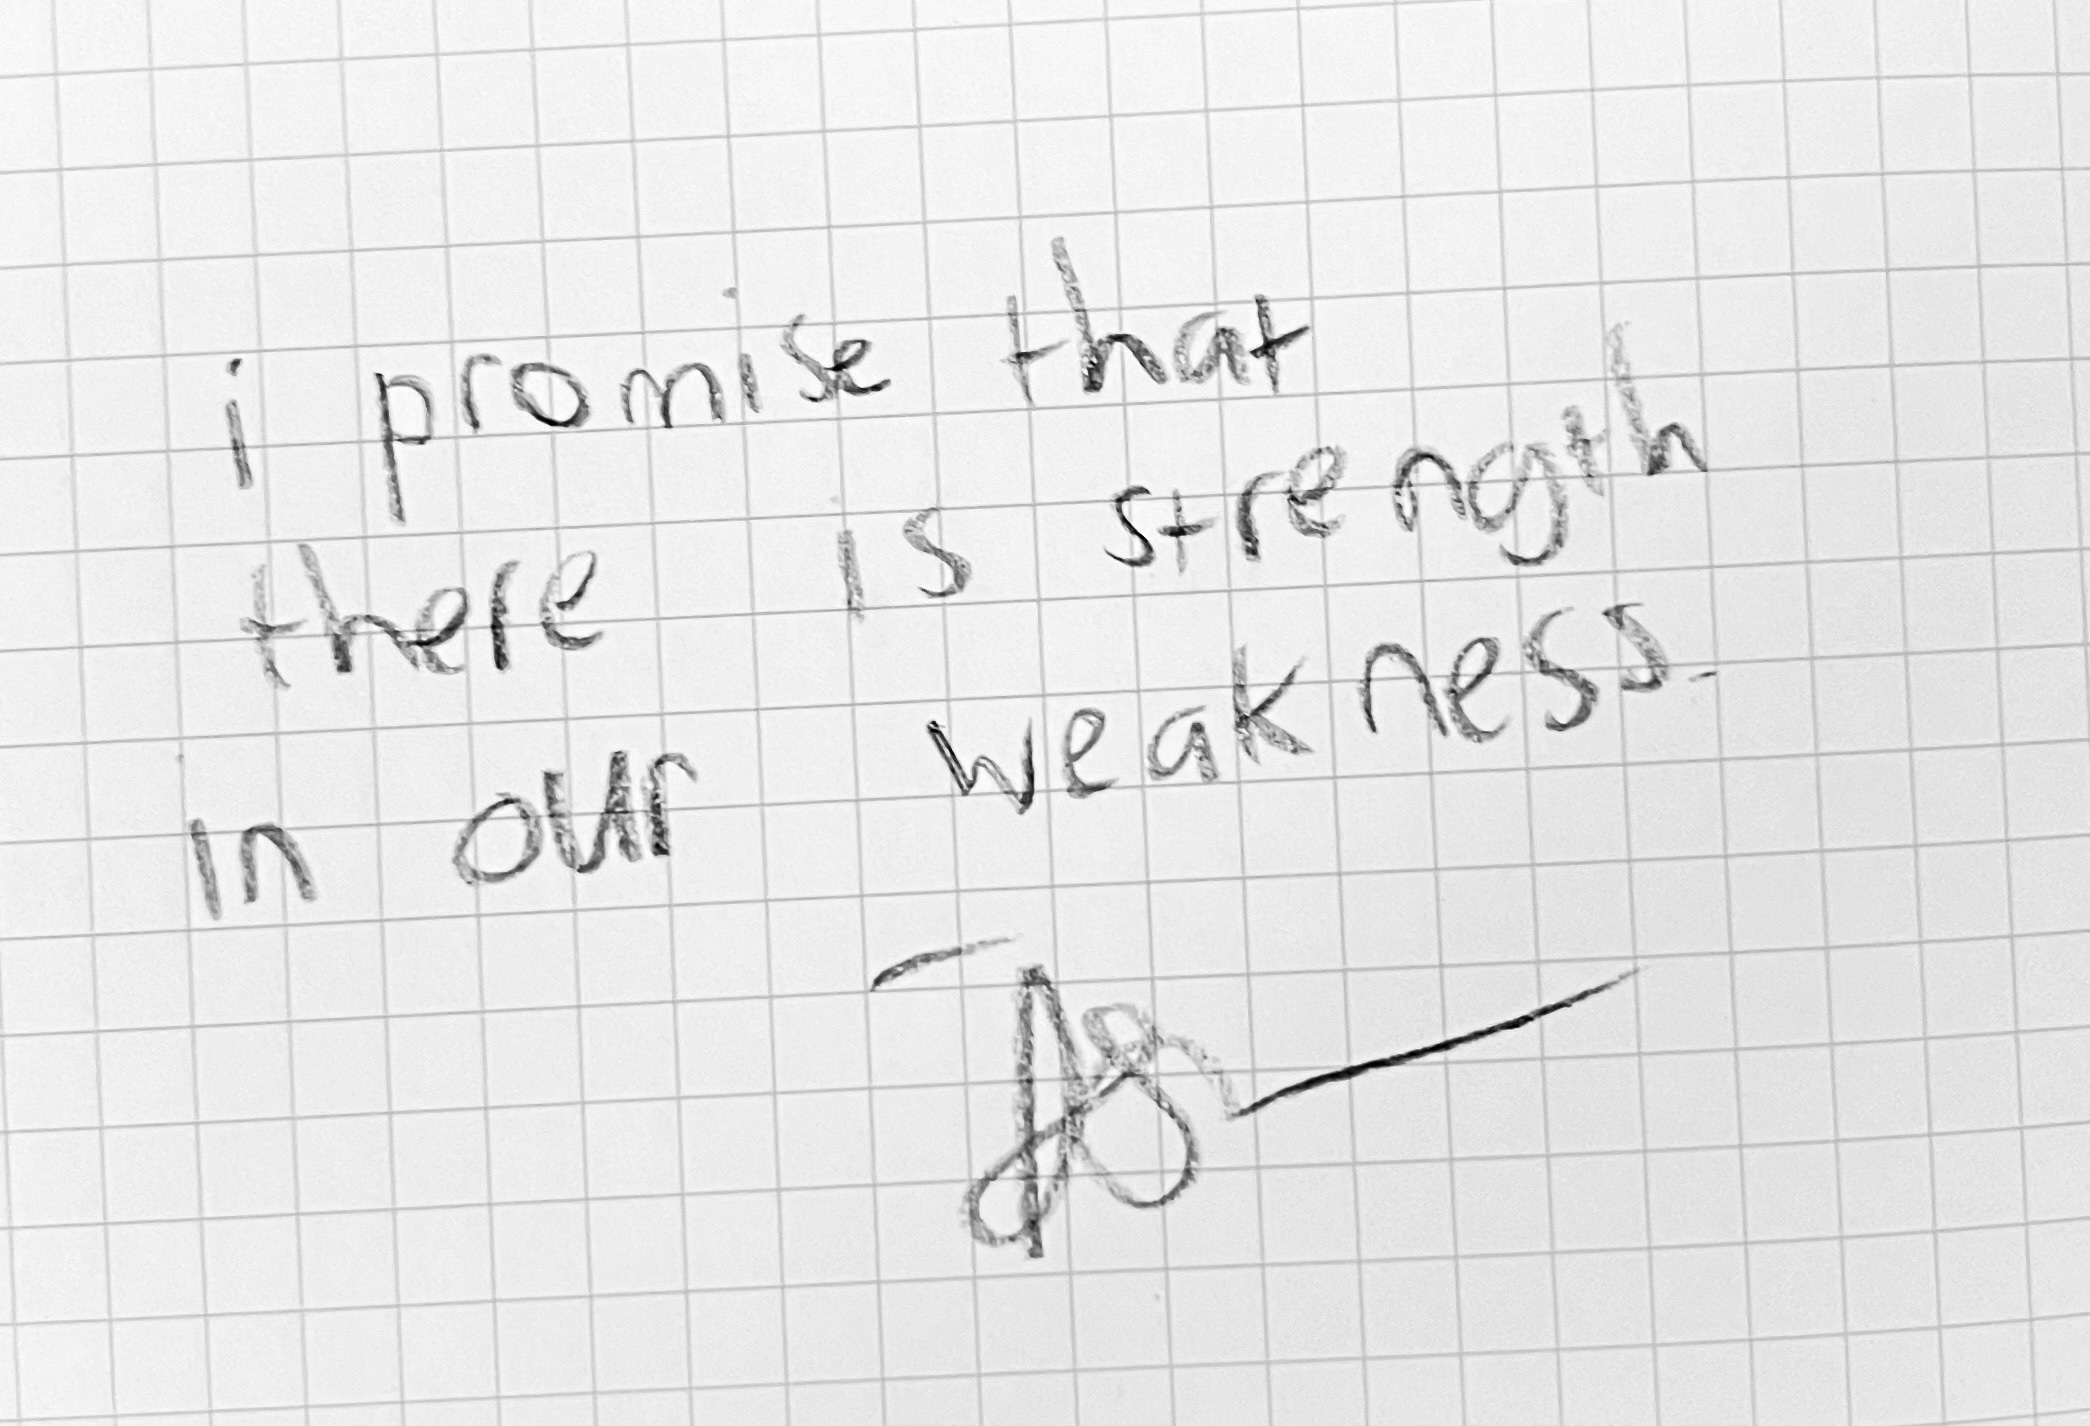 i promise that
there is strength
in our weakness.